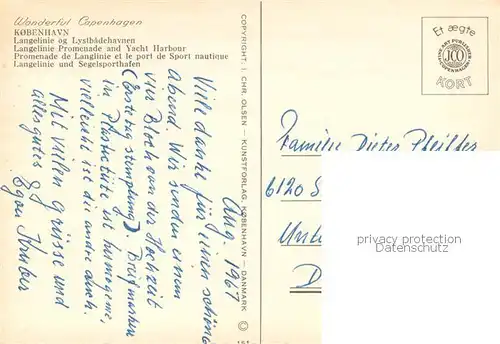 Wonderful Copenhagen
KØBENHAVN
Langelinie og Lystbådehavnen
Langelinie Promenade and Yacht Harbour
Promenade de Langlinie et le port de Sport nautique
Langelinie und Segelsporthafen
COPYRIGHT: I. CHR. OLSEN — KUNSTFORLAG, KØBENHAVN — DANMARK ©
Et ægte
JCO
KORT
Aug. 1967
Viele danke für einen schönen
abend. Wir senden einen
vier Bloch von die Hochzeit
(Erstetag stempling). Briefmarken
in Plastictüte ist
vielleicht ist die andre auch.
Mit vielen grüsse und
alles gutes
Egon
Familie Dieter
6120
privacy protection
Datenschutz